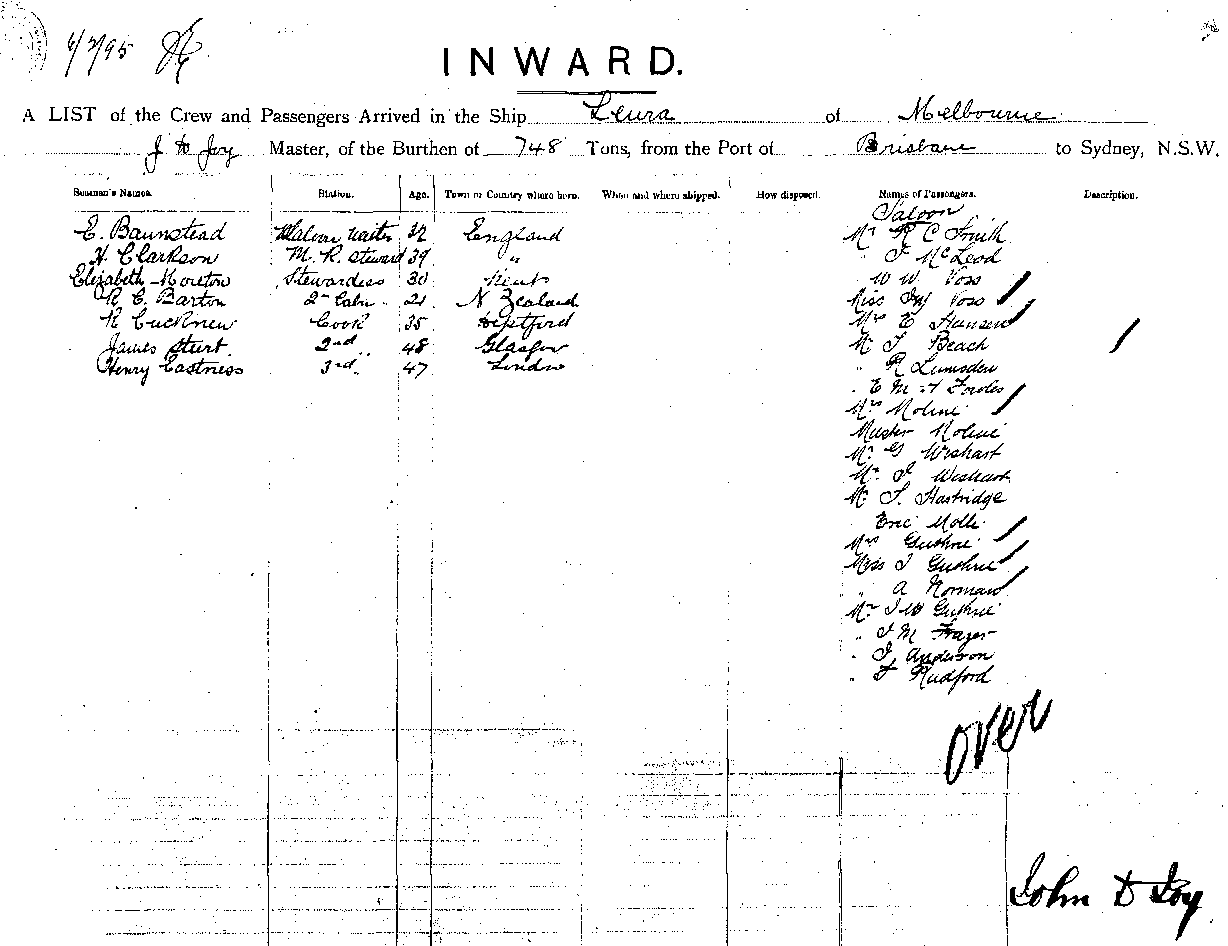 6/7/95
INWARD.
A LIST of the Crew and Passengers Arrived in the Ship Leura of Melbourne
J D Joy Master, of the Burthen of 748 Tons, from the Port of Brisbane to Sydney, N.S.W.
Seaman's Names. Station. Age. Town or Country where born. When and where shipped. How disposed. Names of Passengers. Description.
Saloon
E. Baunstead Saloon Waiter 32 England Mr R C Smith
H Clarkson M. R. Steward 39 " " J McLeod
Elizabeth Moreton Stewardess 30 Kent W W Voss
R C. Barton 2nd Cabin 21 N Zealand Miss Voss
R Cucknew Cook 35 Deptford Mrs E Hansen
James Sturt 2nd " 48 Glasgow Mr J Beach
Henry Eastness 3rd " 47 London " R Lumsden
" E M Fordes
Mrs Moline
Master Moline
Mr G Wishart
Mr J Wishart
Mr S. Hastridge
Eric Molle
Mrs Guthrie
Miss J Guthrie
" A Norman
Mr J W Guthrie
" J M Frazer
" J, Anderson
" F Rudford
over
John D Joy